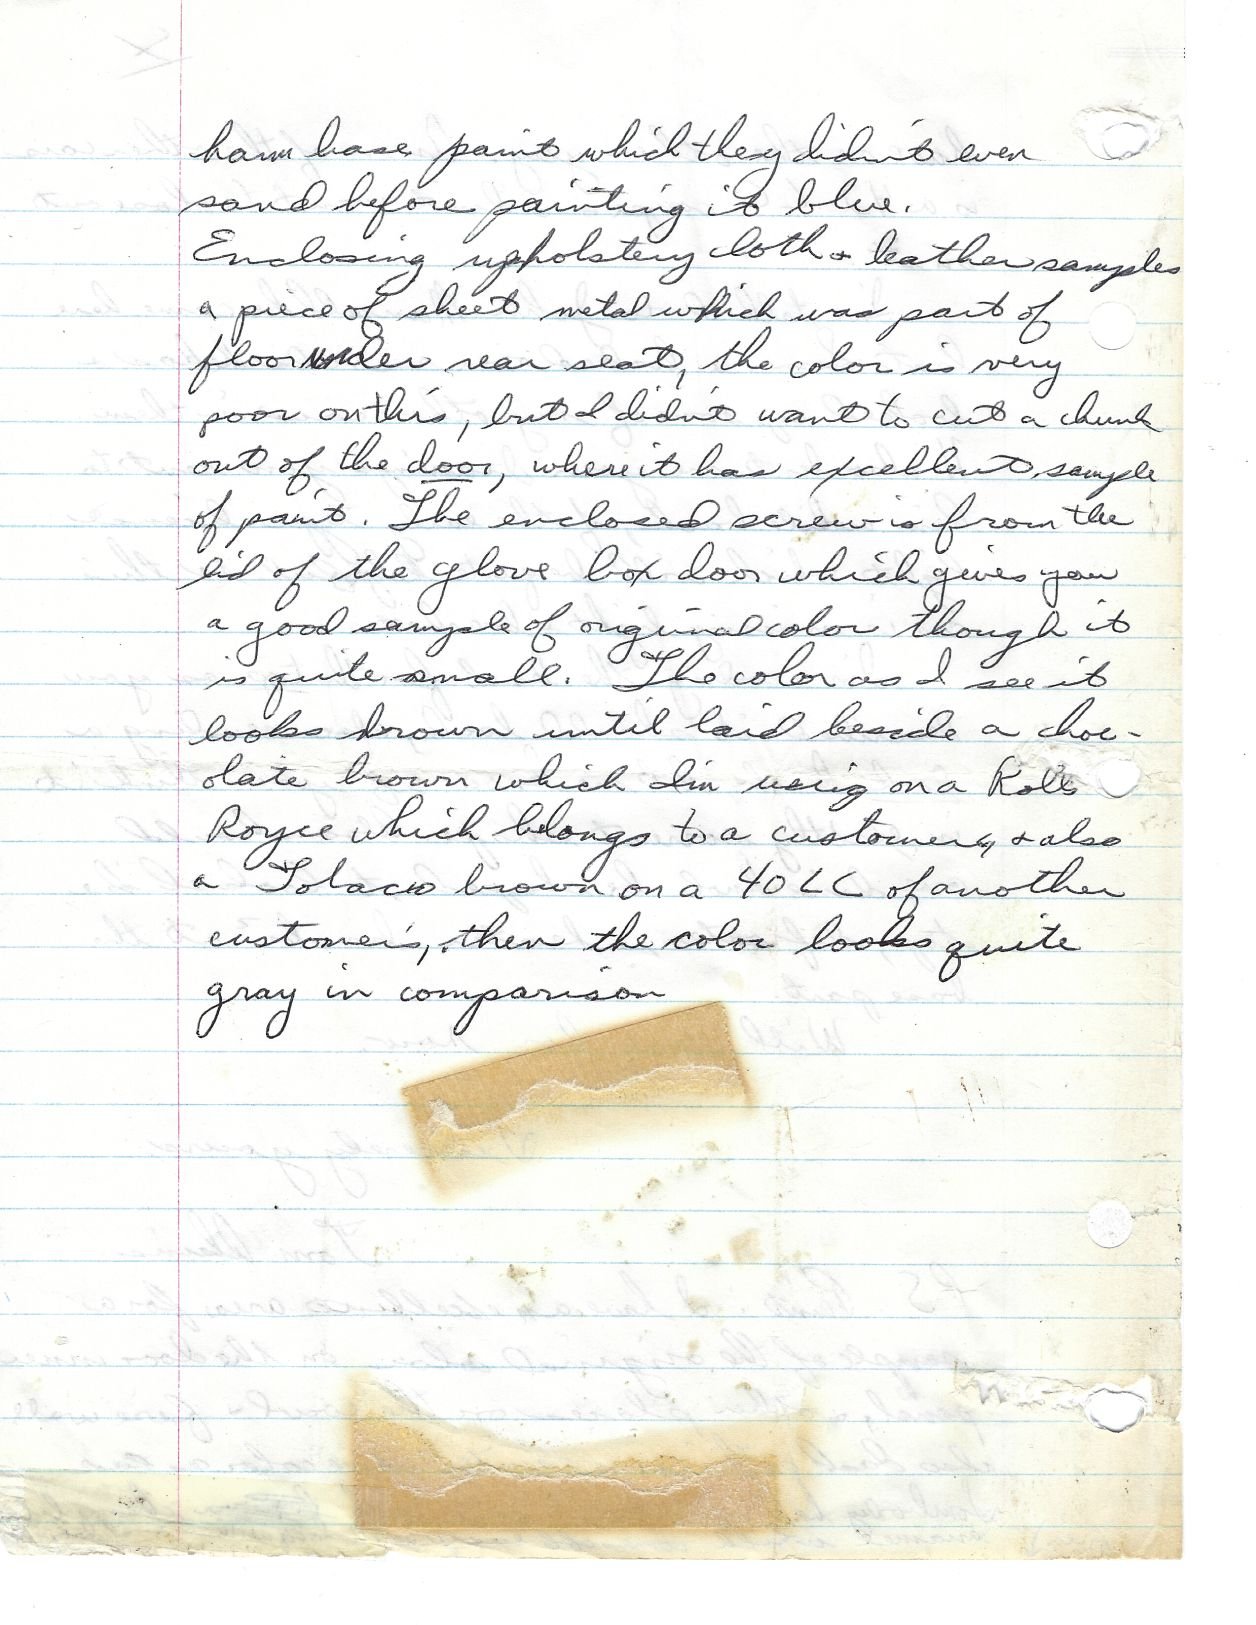 base paint which they didn't even
sand before painting it blue.
Enclosing upholstery cloth & leather samples
a piece of sheet metal which was part of
floor under rear seat, the color is very
poor on this, but I didn't want to cut a chunk
out of the door, where it has excellent sample
of paint. The enclosed screw is from the
lid of the glove box door which gives you
a good sample of original color though it
is quite small. The color as I see it
looks brown until laid beside a choc-
olate brown which I'm using on a Rolls
Royce which belongs to a customer, & also
a Tobacco brown on a 40 LC of another
customer's, then the color looks quite
gray in comparison